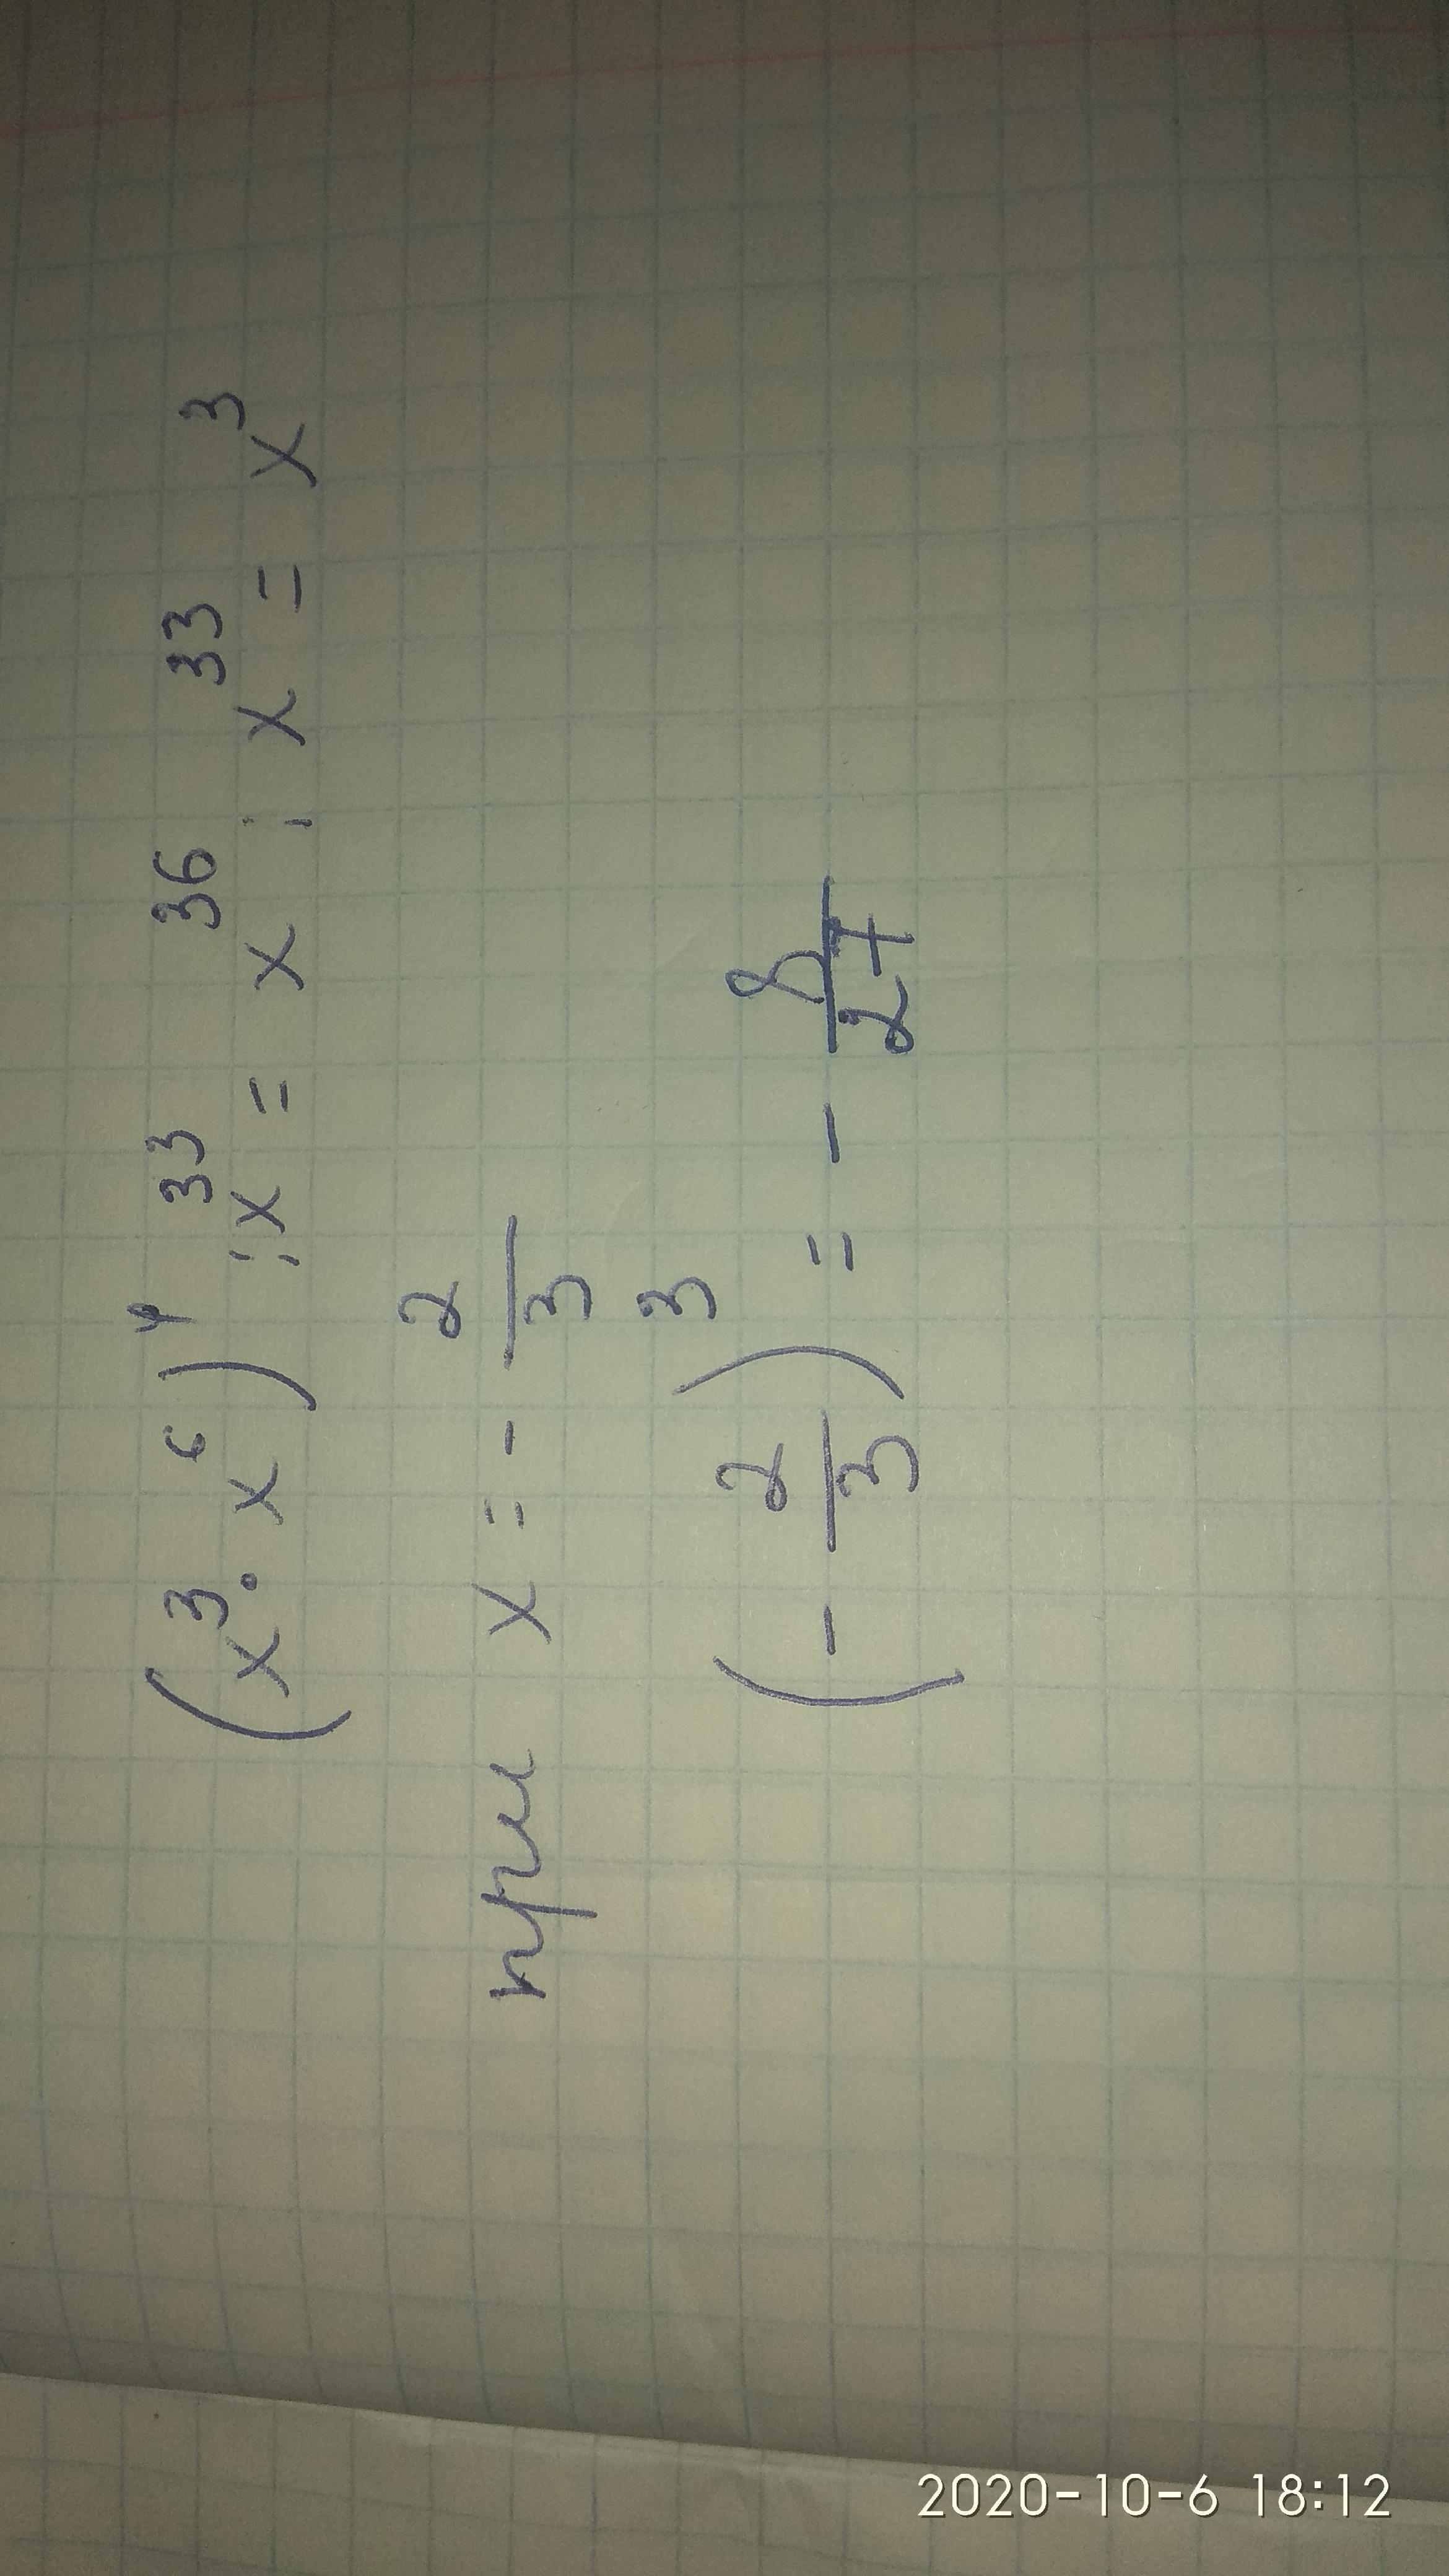 (x³·x⁶)⁴:x³³=x³⁶:x³³=x³
при x=-2/3
(-2/3)³=-8/27
2020-10-6 18:12